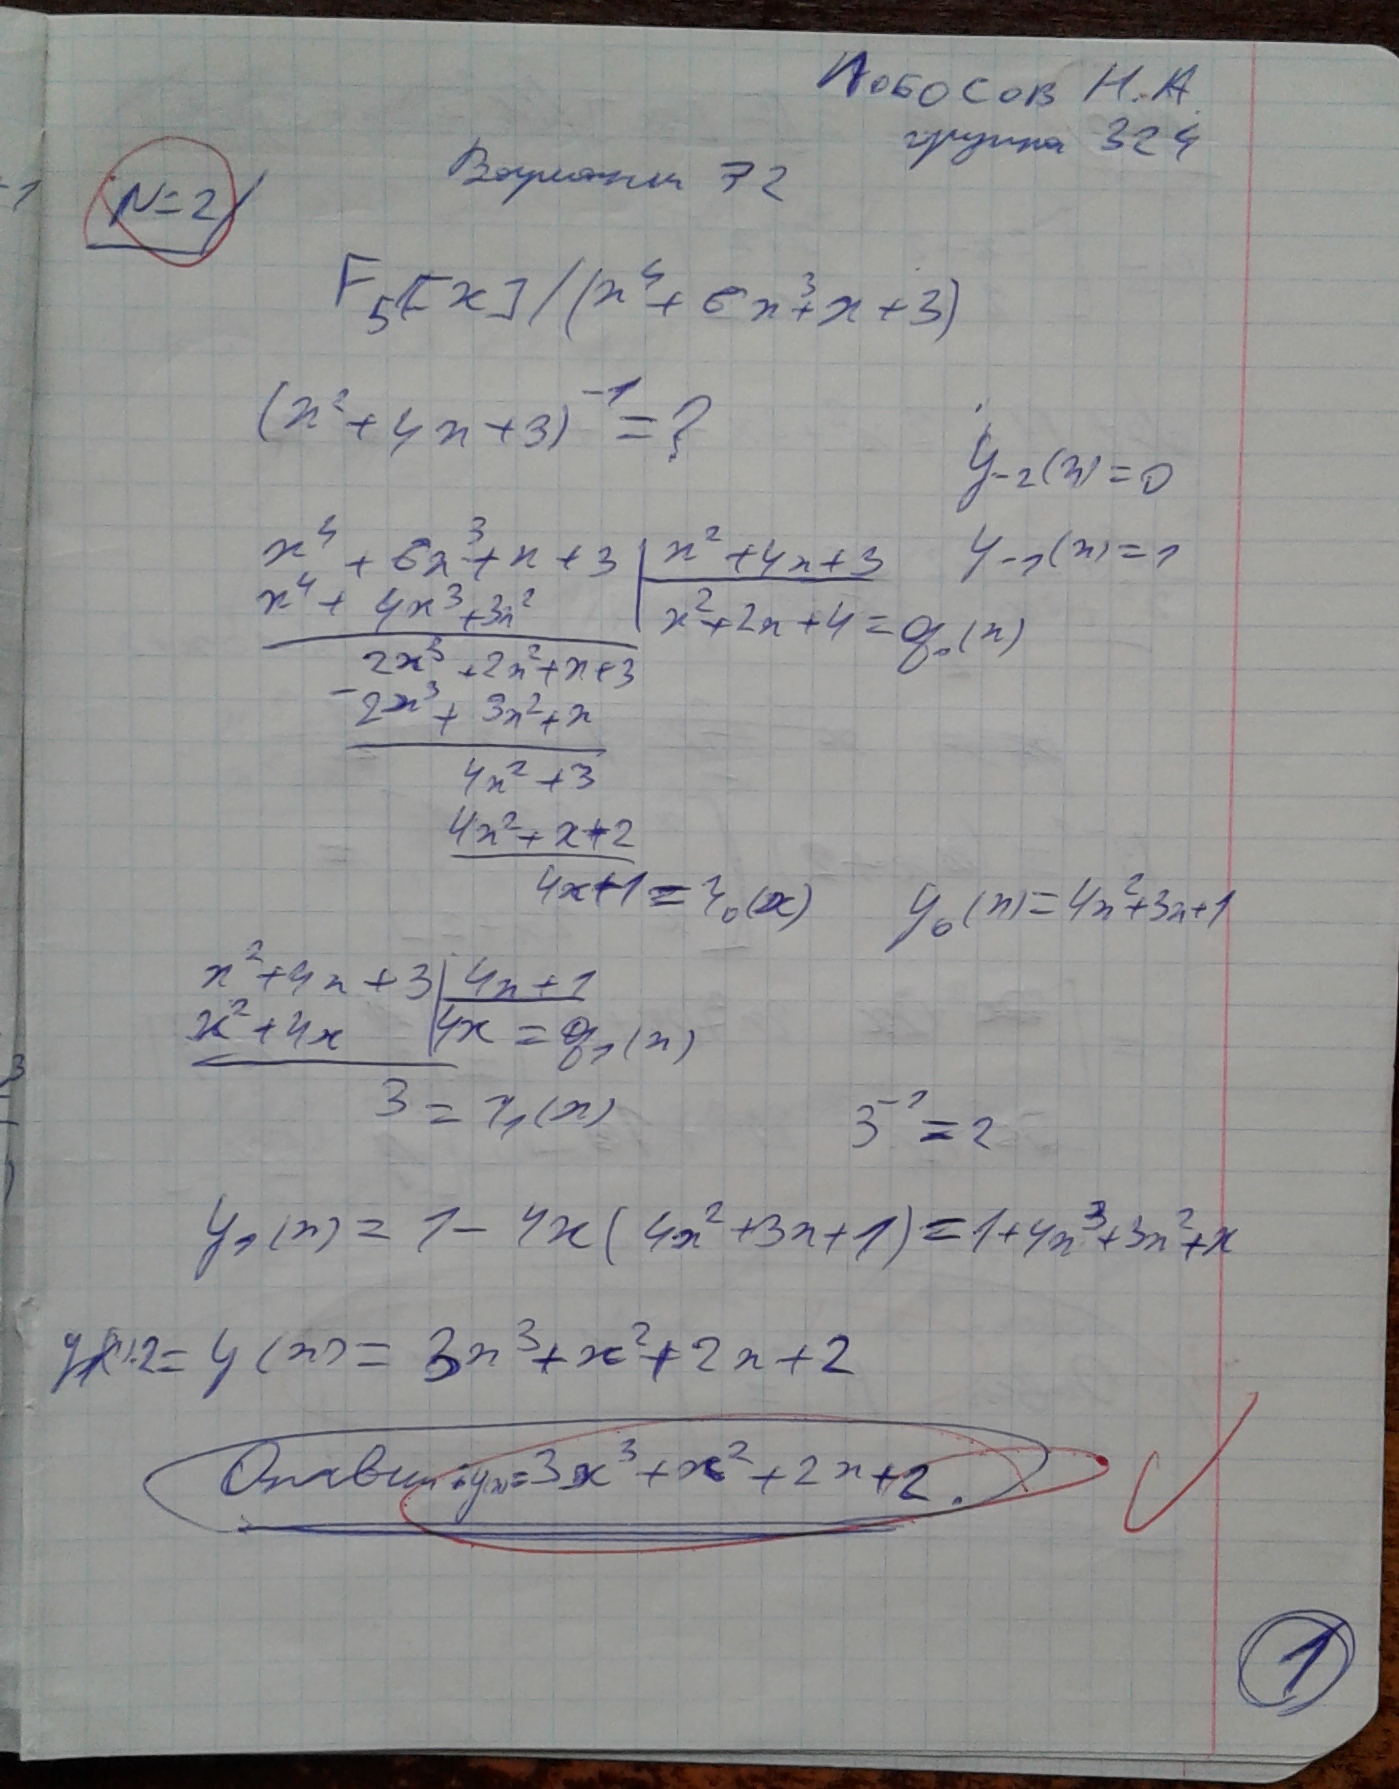 Лобосов Н.А.
группа 324
Вариант 72
N=2
F₅[x]/(x⁴+6x³+x+3)
(x²+4x+3)⁻¹=?
y₋₂(x)=0
x⁴+6x³+x+3 | x²+4x+3
y₋₁(x)=1
x⁴+4x³+3x² | x²+2x+4=q₀(x)
2x³+2x²+x+3
-2x³+3x²+x
4x²+3
4x²+x+2
4x+1=r₀(x)
y₀(x)=4x²+3x+1
x²+4x+3 | 4x+1
x²+4x | 4x=q₁(x)
3=r₁(x)
3⁻¹=2
y₁(x)=1-4x(4x²+3x+1)=1+4x³+3x²+x
·2=y(x)=3x³+x²+2x+2
Ответ: y(x)=3x³+x²+2x+2.
1